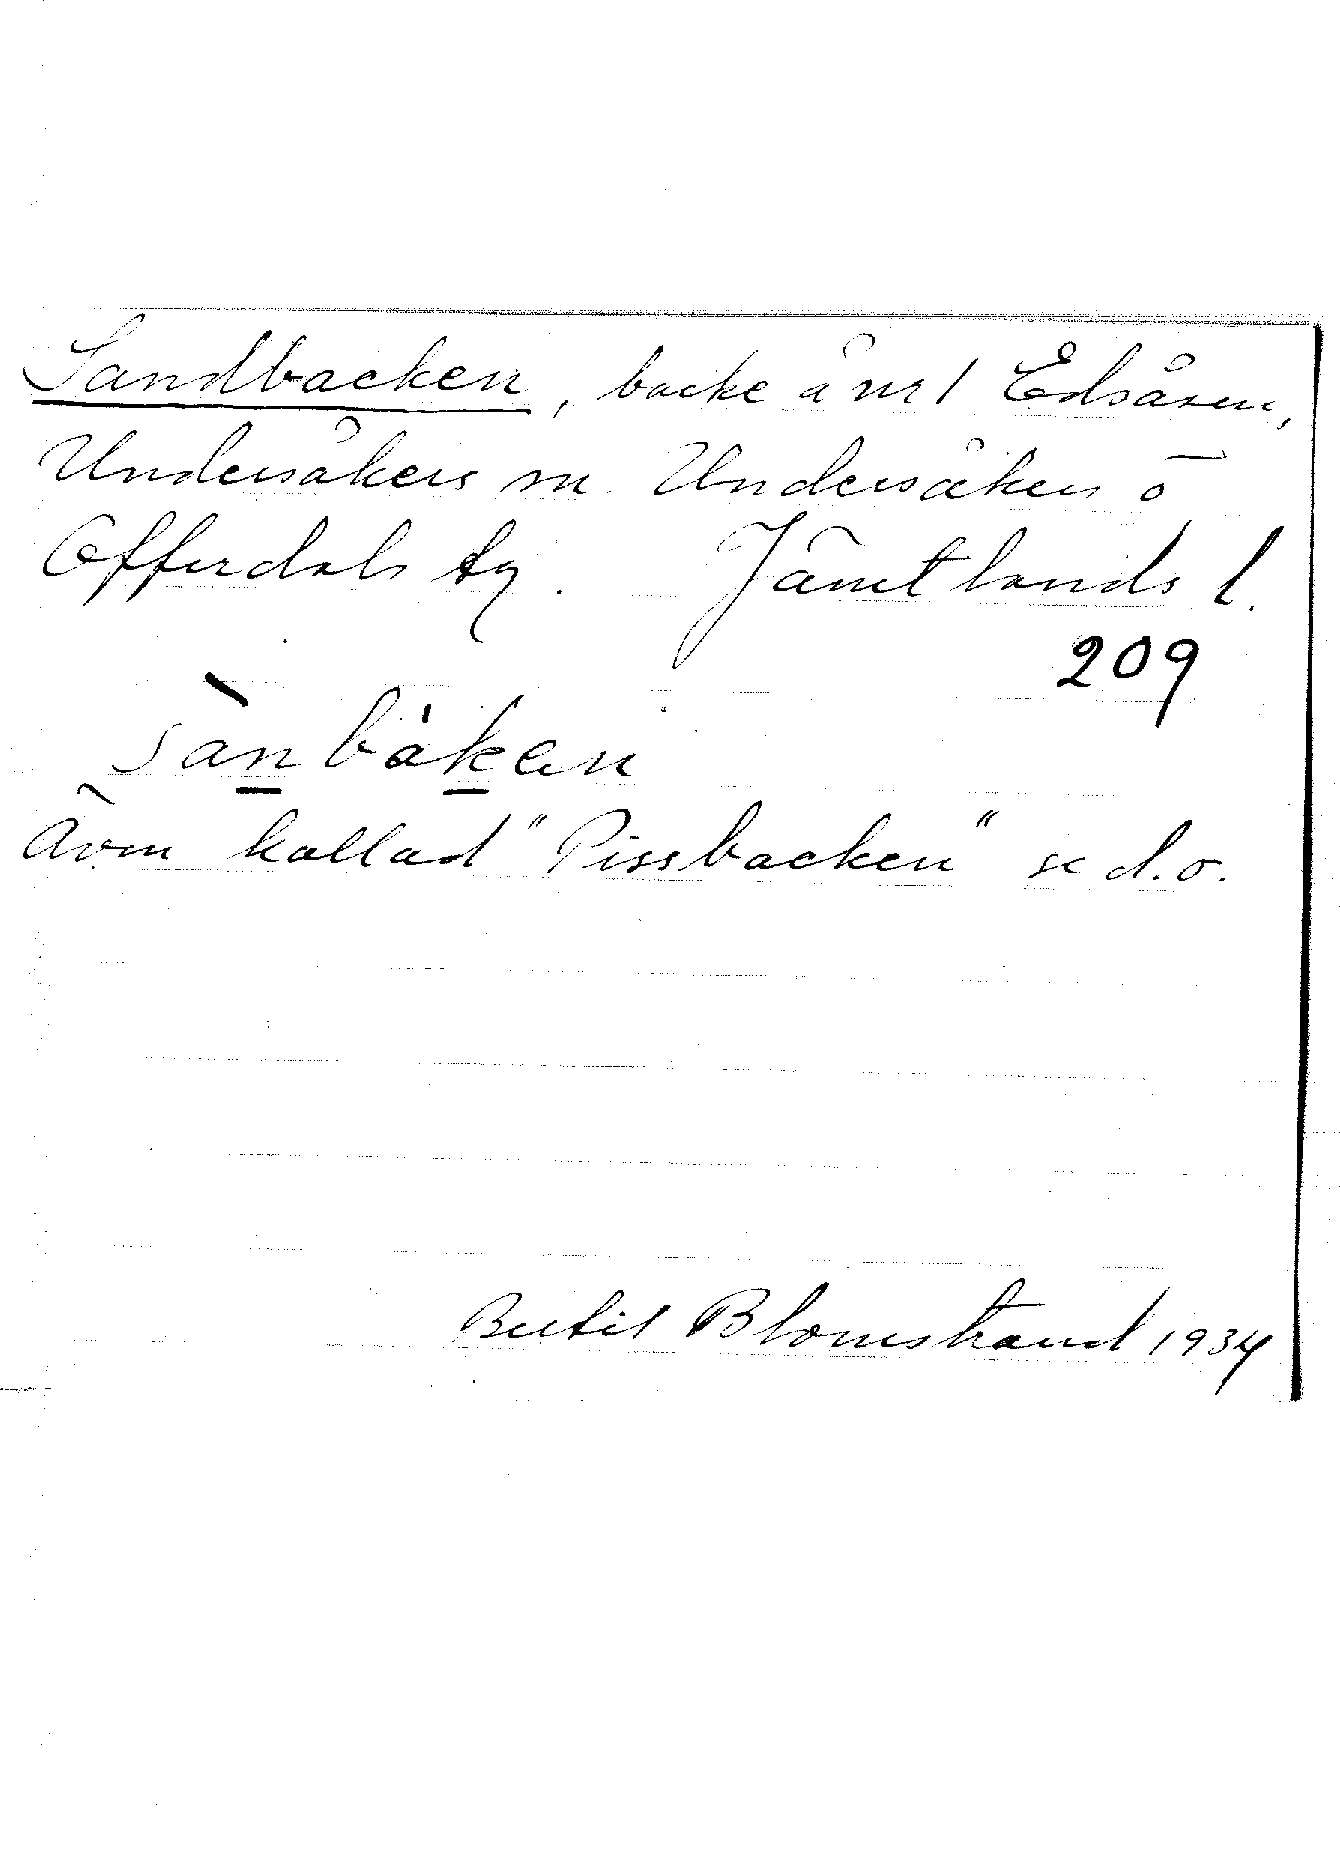 Sandbacken, backe å nr 1 Edsåsen,
Undersåkers sn Undersåkers o
Offerdals tg. Jämtlands l.
209
sànbákan
Även kallad "Pissbacken" se d.o.
Bertil Blomstrand 1934